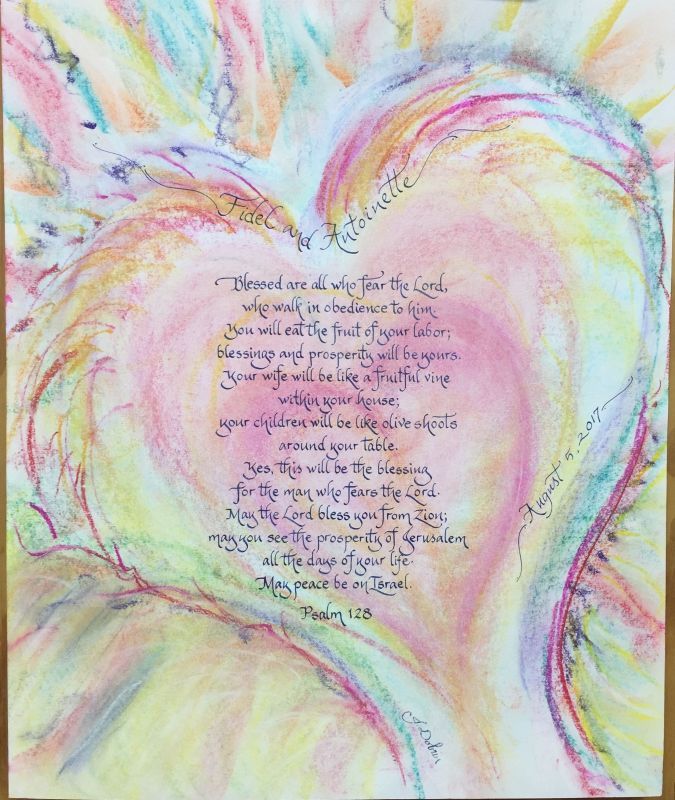 Fidel and Antoinette
Blessed are all who fear the Lord,
who walk in obedience to him.
You will eat the fruit of your labor;
blessings and prosperity will be yours.
Your wife will be like a fruitful vine
within your house;
your children will be like olive shoots
around your table.
Yes, this will be the blessing
for the man who fears the Lord.
May the Lord bless you from Zion;
may you see the prosperity of Jerusalem
all the days of your life.
May peace be on Israel.
Psalm 128
August 5, 2017